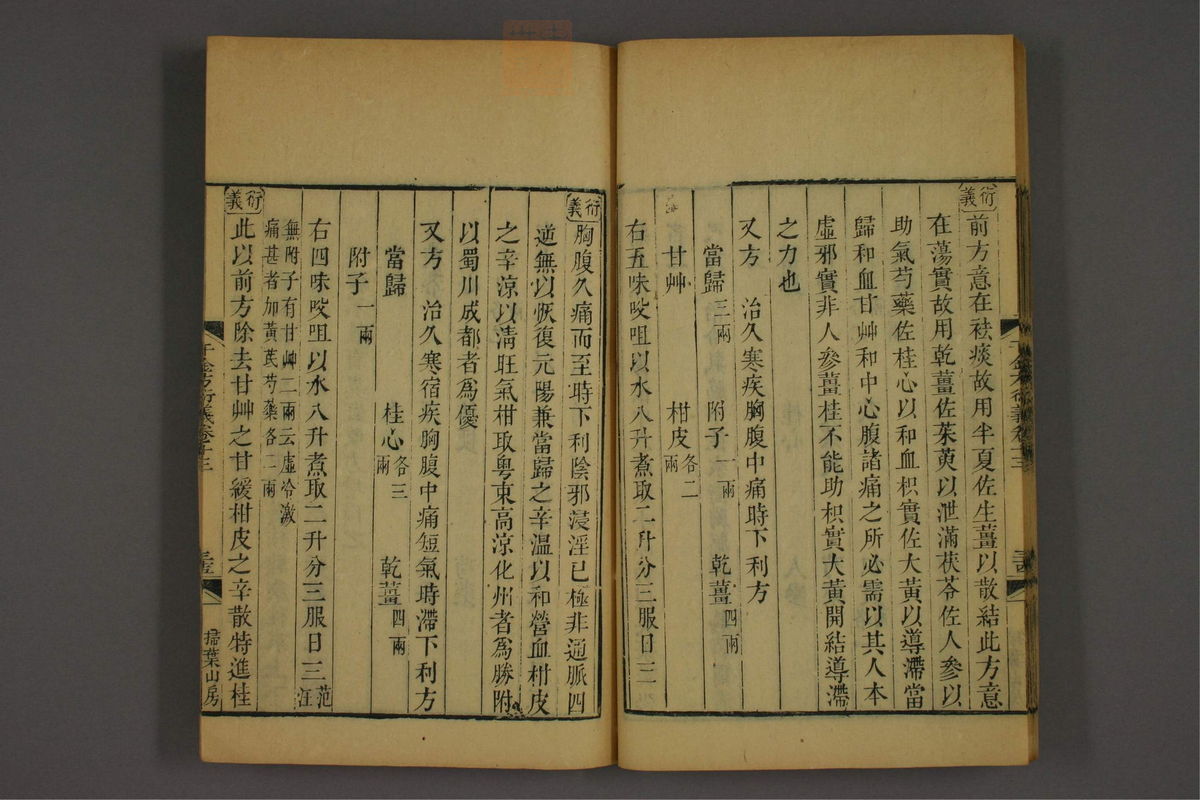 衍義
前方意在祛痰故用半夏佐生薑以散結此方意
在蕩實故用乾薑佐茱萸以泄滿茯苓佐人參以
助氣芍藥佐桂心以和血枳實佐大黃以導滯當
歸和血甘艸和中心腹諸痛之所必需以其人本
虛邪實非人參薑桂不能助枳實大黃開結導滯
之力也
又方 治久寒疾胸腹中痛時下利方
當歸三兩 附子一兩 乾薑四兩
甘艸 柑皮各二兩
右五味㕮咀以水八升煮取二升分三服日三
衍義
胸腹久痛而至時下利陰邪浸淫已極非通脈四
逆無以恢復元陽兼當歸之辛溫以和營血柑皮
之辛涼以清旺氣柑取粤東高涼化州者為勝附
以蜀川成都者為優
又方 治久寒宿疾胸腹中痛短氣時滯下利方
當歸 桂心各三兩 乾薑四兩
附子一兩
右四味㕮咀以水八升煮取二升分三服日三范汪
無附子有甘艸二兩云虛冷激
痛甚者加黃芪芍藥各二兩
衍義
此以前方除去甘艸之甘緩柑皮之辛散特進桂
千金方衍義卷十三
掃葉山房